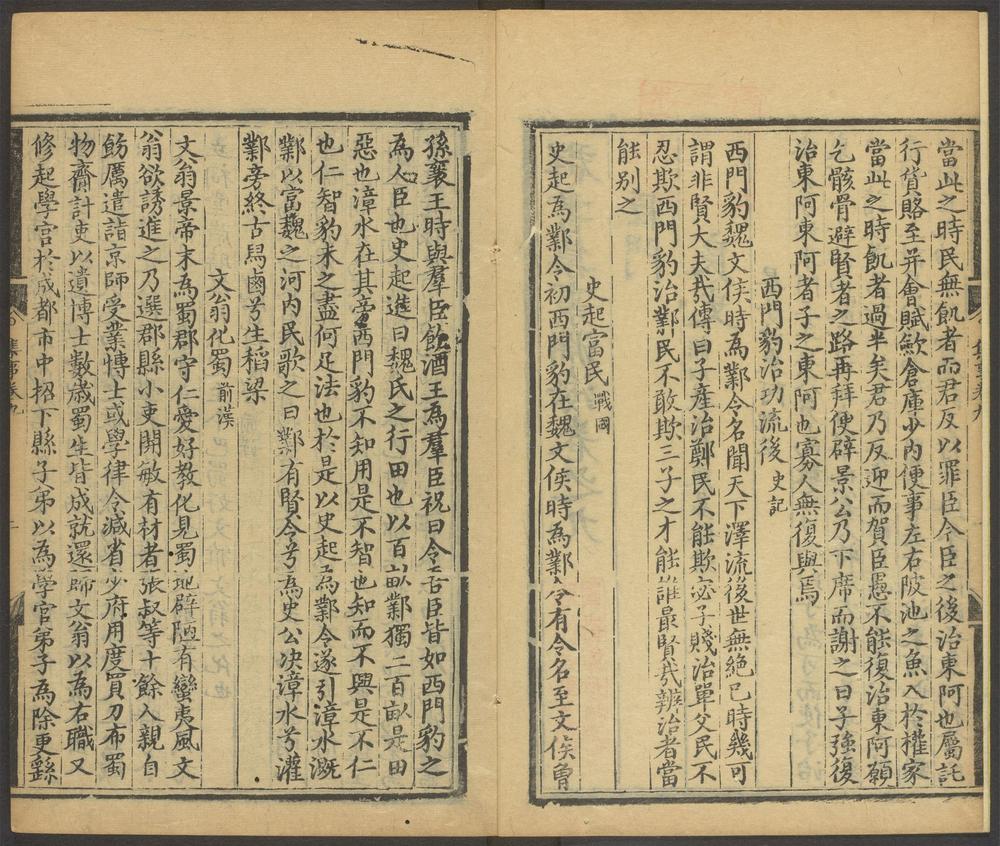 當此之時民無飢者而君反以罪臣今臣之後治東阿也屬託
行貨賂至并會賦斂倉庫少内便事左右陂池之魚入於權家
當此之時飢者過半矣君乃反迎而賀臣愚不能復治東阿願
乞骸骨避賢者之路再拜便辟景公乃下席而謝之曰子強復
治東阿東阿者子之東阿也寡人無復與焉
西門豹治功流後 史記
西門豹魏文侯時為鄴令名聞天下澤流後世無絶已時幾可
謂非賢大夫㢤傳曰子產治鄭民不能欺宓子賤治單父民不
忍欺西門豹治鄴民不敢欺三子之才能誰最賢㢤辨治者當
能別之
史起富民 戰國
史起為鄴令初西門豹在魏文侯時為鄴令有令名至文侯曾
孫襄王時與羣臣飲酒王為羣臣祝曰令吾臣皆如西門豹之
為人臣也史起進曰魏氏之行田也以百畝鄴獨二百畝是田
惡也漳水在其旁西門豹不知用是不智也知而不興是不仁
也仁智豹未之盡何足法也於是以史起為鄴令遂引漳水溉
鄴以富魏之河内民歌之曰鄴有賢令兮為史公决漳水兮灌
鄴旁終古舄鹵兮生稻梁
文翁化蜀 前漢
文翁景帝末為蜀郡守仁愛好教化見蜀地辟陋有蠻夷風文
翁欲誘進之乃選郡縣小吏開敏有材者張叔等十餘人親自
飭厲遣詣京師受業博士或學律令減省少府用度買刀布蜀
物齎計吏以遺博士數歲蜀生皆成就還歸文翁以為右職又
修起學宫於成都市中招下縣子弟以為學官弟子為除更繇